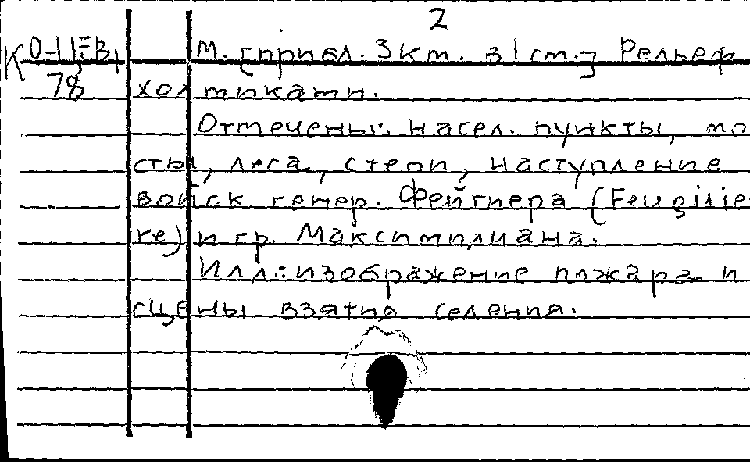 2
К 0-Ц.Е-В1
78
М. [прибл. 3км. в 1см.] Рельеф
холмиками.
Отмечены: насел. пункты, мо
сты, леса, степи, наступление
войск генер. Фейгиера (Feugiie
re) и гр. Максимилиана.
Илл: изображение пожара и
сцены взятия селения.